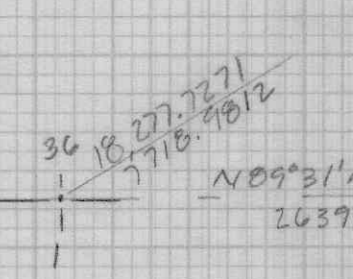 36
18,277.7271
7718.9812
N89°31'
2639
1